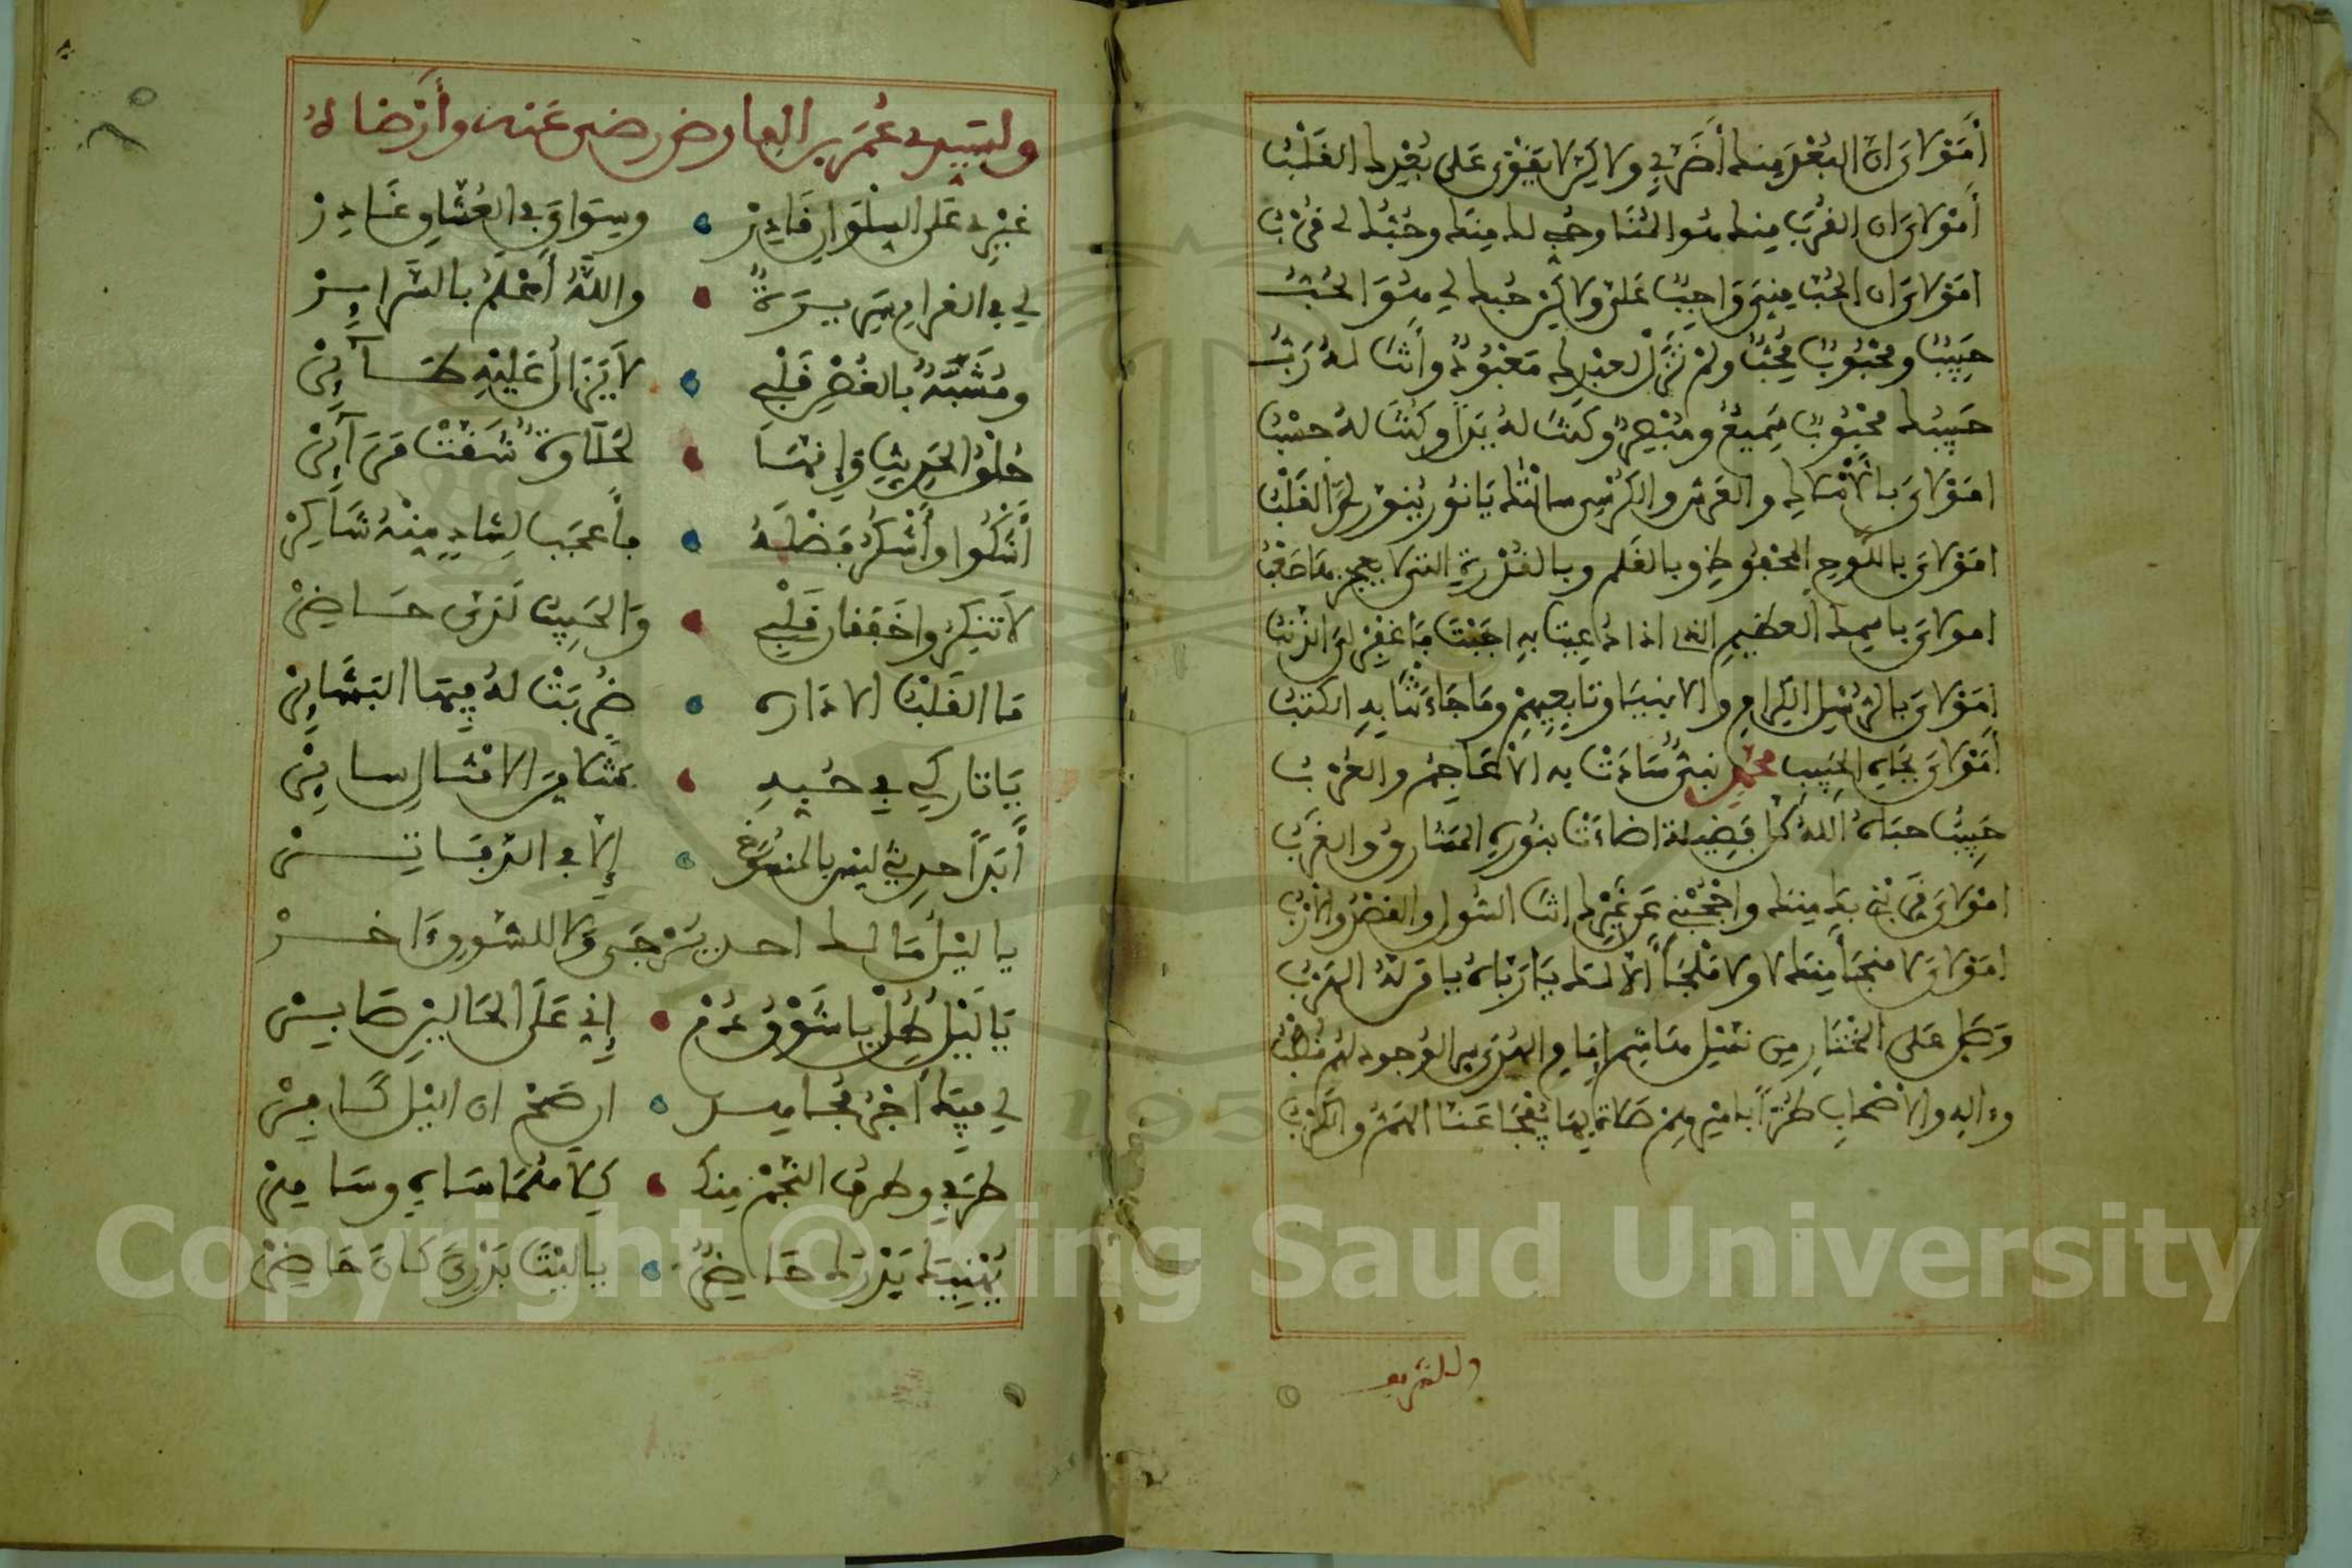 أمولاي ان البعد منك أضر بي ولاكن لا يقوى على بعدك القلب
أمولاي ان القرب منك هو المنا وحبي لك منك وحبك لي قرب
امولاي ان الحب مني واجبا على ولاكن حبك لي هو الحب
حبيب ومحبوب محب ولم تزل لعبدك معبود وأنت له رب
حبيبك محبوب سميع ومبصر وكنت له يدا وكنت له حسب
امولاي بالأملاك والعرش والكرسي سالتك يا نور ينور لي القلب
امولاي باللوح المحفوظ وبالقلم وبالقدرة التي لا يعجز
امولاي باسمك العظيم الذي اذا دعيت به اجبت فاغفر لي الذنب
امولاي بالرسل الكرام والانبيا وتابعيهم وما جاءت به الكتب
أمولاي بجاه الحبيب محمد نبي سادت به الأعاجم والعرب
حبيب حباه الله كل فضيلة اضاءت بنوره المشارق والغرب
امولاي قربني بك منك واحجبني عن غيرك انت السول والقصد والارب
امولاي لا منجا منك لا ولا ملجأ الا لك يا رباه يا
وصل على المختار من نسل هاشم إمام الهدى
وءاله والأصحاب طرا بأمن من صلاة بها يفجا عنا الهم والكرب
وللشريف
ولسيدي عمر بن الفارض رضي عنه وأرضاه
غيري على السلوان قادر وسواي في العشاق غادر
لي في الغرام سريرة والله أعلم بالسرائر
ومشبه بالغصن قلبي لا يزال عليه طائر
حلو الحديث وإنها لحلاوة شقت مرائر
أشكوا وأشكر فضله فأعجب لشاك منه شاكر
لا تنكروا خفقان قلبي والحبيب لدي حاضر
ما القلب الا داره ضربت له فيها البشائر
يا تاركي في حبه مثلا من الامثال سائر
أبدا حديثي ليس بالمنسوخ إلا في الدفاتر
يا ليل ما لك اخر يرجى ولا للشوق ءاخر
يا ليل طل يا شوق دم إني على الحالين صابر
لي فيك أجر مجاهد ان صح ان اليل كافر
طرفي وطرف النجم فيك كلاهما ساه وساهر
يهنيك بدرك حاضر يا ليت بدري كان حاضر
Copyright © King Saud University